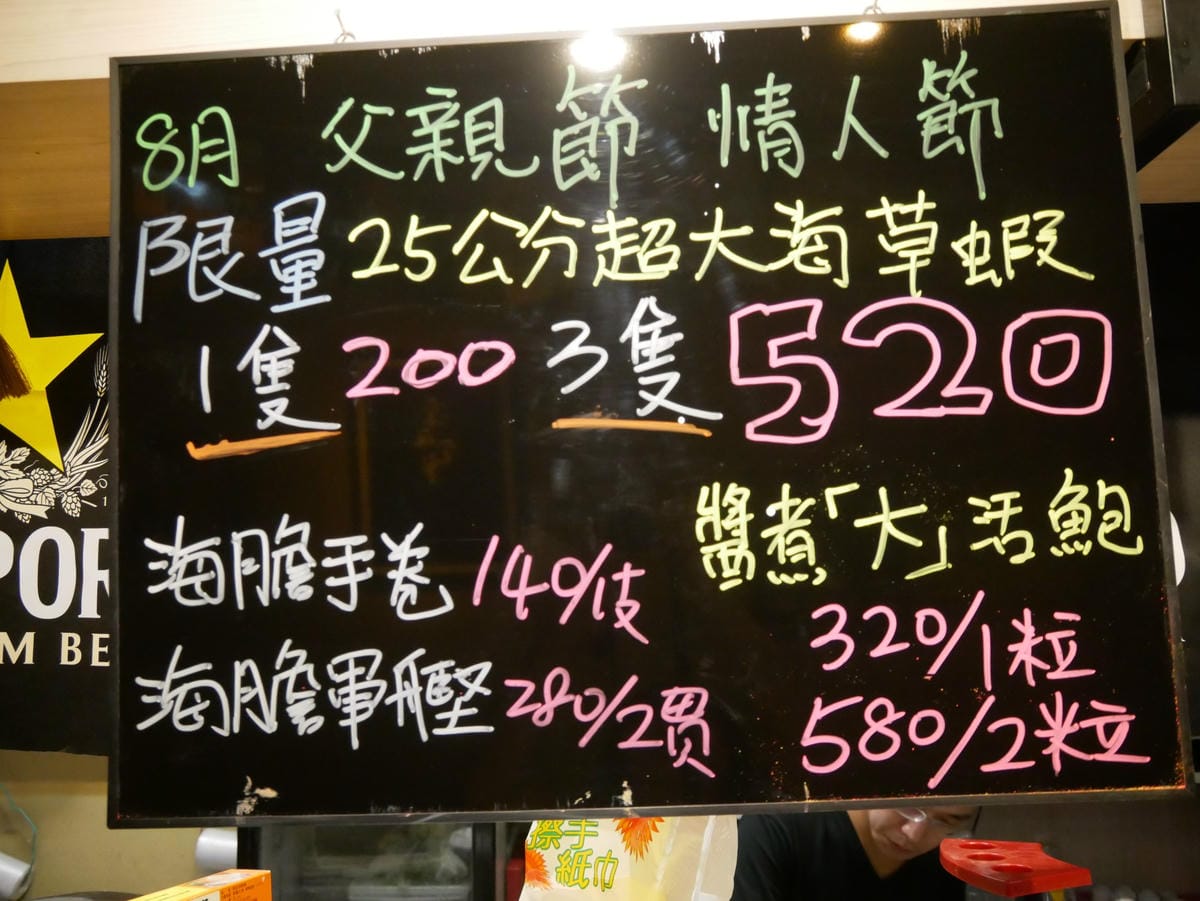 8月 父親節 情人節
限量 25公分超大海草蝦
1隻 200 3隻 520
醬煮「大」活鮑
320/1粒
580/2粒
海膽手卷 140/支
海膽軍艦 280/2贯
POR
M BE
擦手
紙巾